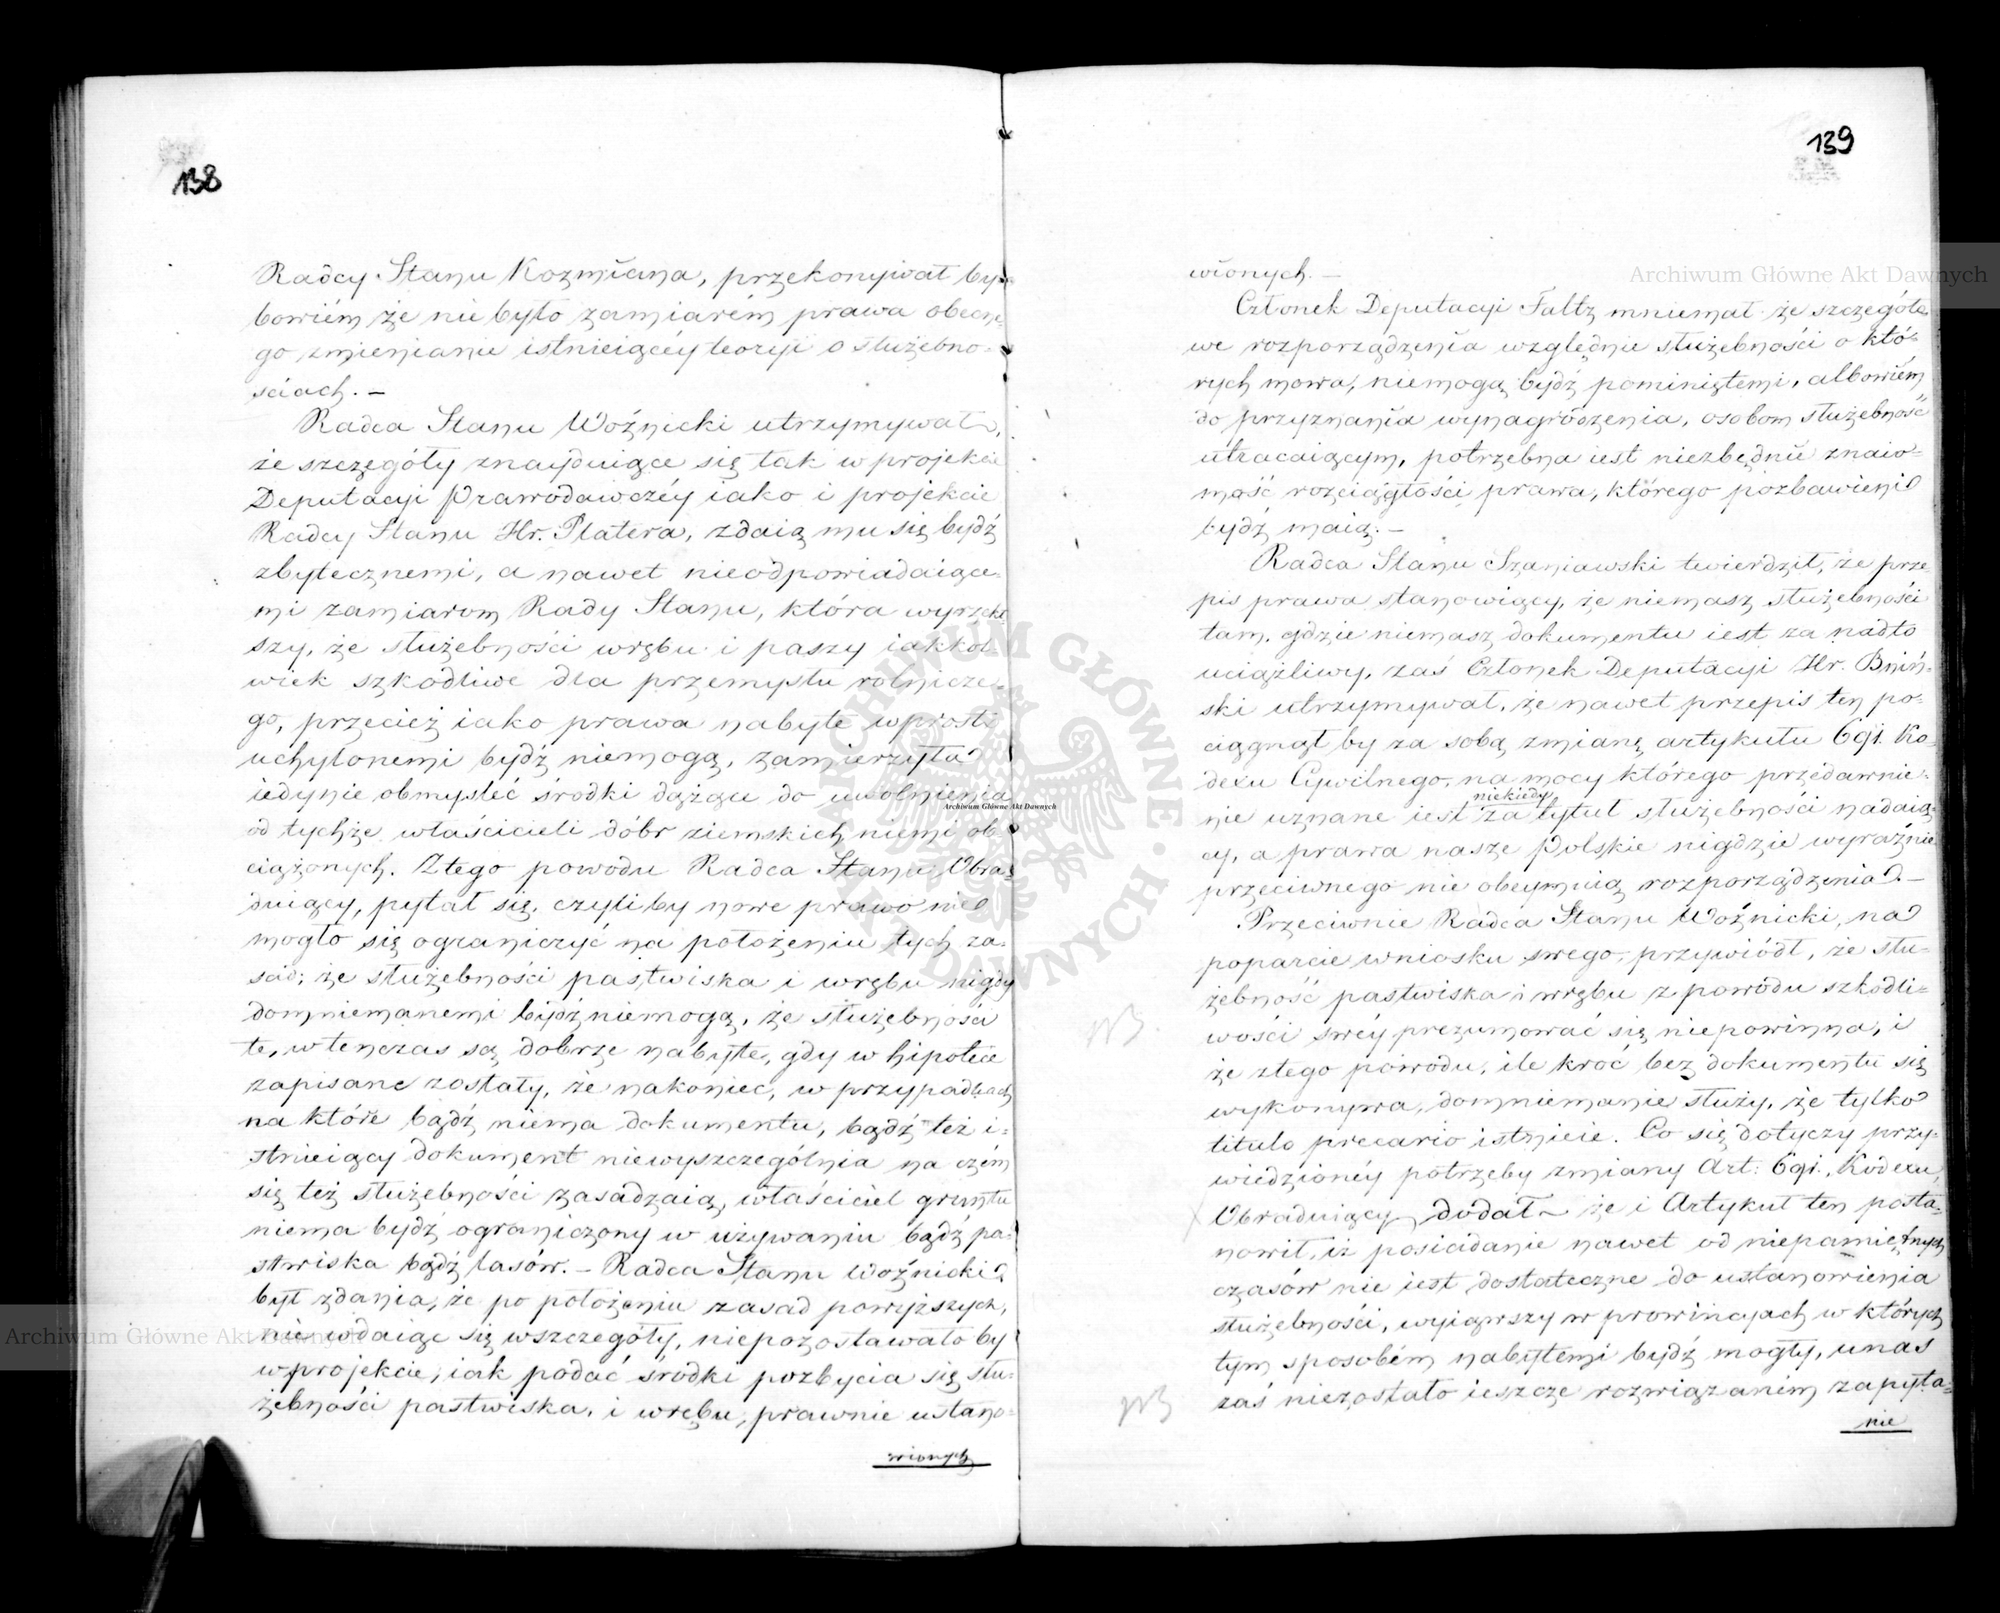 138
Radcy Stanu Kozmiana, przekonywał by-
bowiém że nie było zamiarém prawa obecne-
go zmienianie istnieiącéy teoryi o służebno-
ściach. –
Radca Stanu Woźnicki utrzymywał,
że szczegóły znayduiące się tak w projekcie
Deputacyi Prawodawczéy iako i projekcie
Radcy Stanu Hr. Platera, zdaią mu się bydź
zbytecznemi, a nawet nieodpowiadaiące-
mi zamiarom Rady Stanu, która wyrzekł
szy, że służebności wrębu i paszy iakkol-
wiek szkodliwe dla przemysłu rolnicze-
go, przecież iako prawa nabyte wprost
uchylonemi bydź niemogą, zamierzyła
iedynie obmysleć środki dążące do uwolnienia
od tychże właścicieli dóbr ziemskich niemi ob-
ciążonych. Ztego powodu Radca Stanu Obra-
duiący, pytał się, czyliby nowe prawo nie
mogło się ograniczyć na położeniu tych za-
sad; że służebności pastwiska i wrębu nigdy
domniemanemi bydź niemogą, że służebności
te, wtenczas są dobrze nabyte, gdy w hipotece
zapisane zostały, że nakoniec, w przypadkach
na które bądź niema dokumentu, bądź też i-
stnieiący dokument niewyszczególnia na czém
się też służebności zasadzaią, właściciel gruntu
niema bydź ograniczony w używaniu bądź pa-
stwiska bądź lasów. – Radca Stanu Woźnicki
był zdania, że po położeniu zasad powyższych,
nie wdaiąc się wszczegóły, niepozostawało by
w projekcie, iak podać środki pozbycia się słu-
żebności pastwiska, i wrębu, prawnie ustano-
wionych
139
wionych. –
Członek Deputacyi Faltz mniemał że szczegóło-
we rozporządzenia względnie służebności o któ-
rych mowa, niemogą bydź pominiętemi, albowiém
do przyznania wynagrodzenia, osobom służebność
utracaiącym, potrzebna iest niezbędnie znaio-
mość rozciągłości prawa, którego pozbawieni
bydź maią. –
Radca Stanu Szaniawski twierdził, że prze-
pis prawa stanowiący, że niemasz służebności
tam, gdzie niemasz dokumentu iest za nadto
uciążliwy, zaś Członek Deputacyi Hr. Bniń-
ski utrzymywał, że nawet przepis ten po-
ciągnął by za sobą zmianę artykułu 691. Ko-
dexu Cywilnego, na mocy którego przedawnie-
niekiedy
nie uznane iest za tytuł służebności nadaią-
cy, a prawa nasze Polskie nigdzie wyraźnie
przeciwnego nie obeymuią rozporządzenia. –
Przeciwnie Radca Stanu Woźnicki, na
poparcie wniosku swego, przywiódł, że słu-
żebność pastwiska i wrębu z powodu szkodli-
NB.
wości swéy prezumować się niepowinna, i
że ztego powodu, ile kroć bez dokumentu się
wykonywa, domniemanie służy, że tylko
titulo precario istnieie. Co się dotyczy przy-
wiedzionéy potrzeby zmiany Art: 691. Kodexu,
Obraduiący dodał że i Artykuł ten posta-
nowił, iż posiadanie nawet od niepamiętnych
czasów nie iest dostateczne do ustanowienia
służebności, wyiąwszy w prowincyach w których
tym sposobém nabytemi bydź mogły, unas
NB
zaś niezostało ieszcze rozwiązaném zapyta-
nie
Archiwum Główne Akt Dawnych
Archiwum Główne Akt Dawnych
Archiwum Główne Akt Dawnych
ARCHIWUM GŁÓWNE AKT DAWNYCH